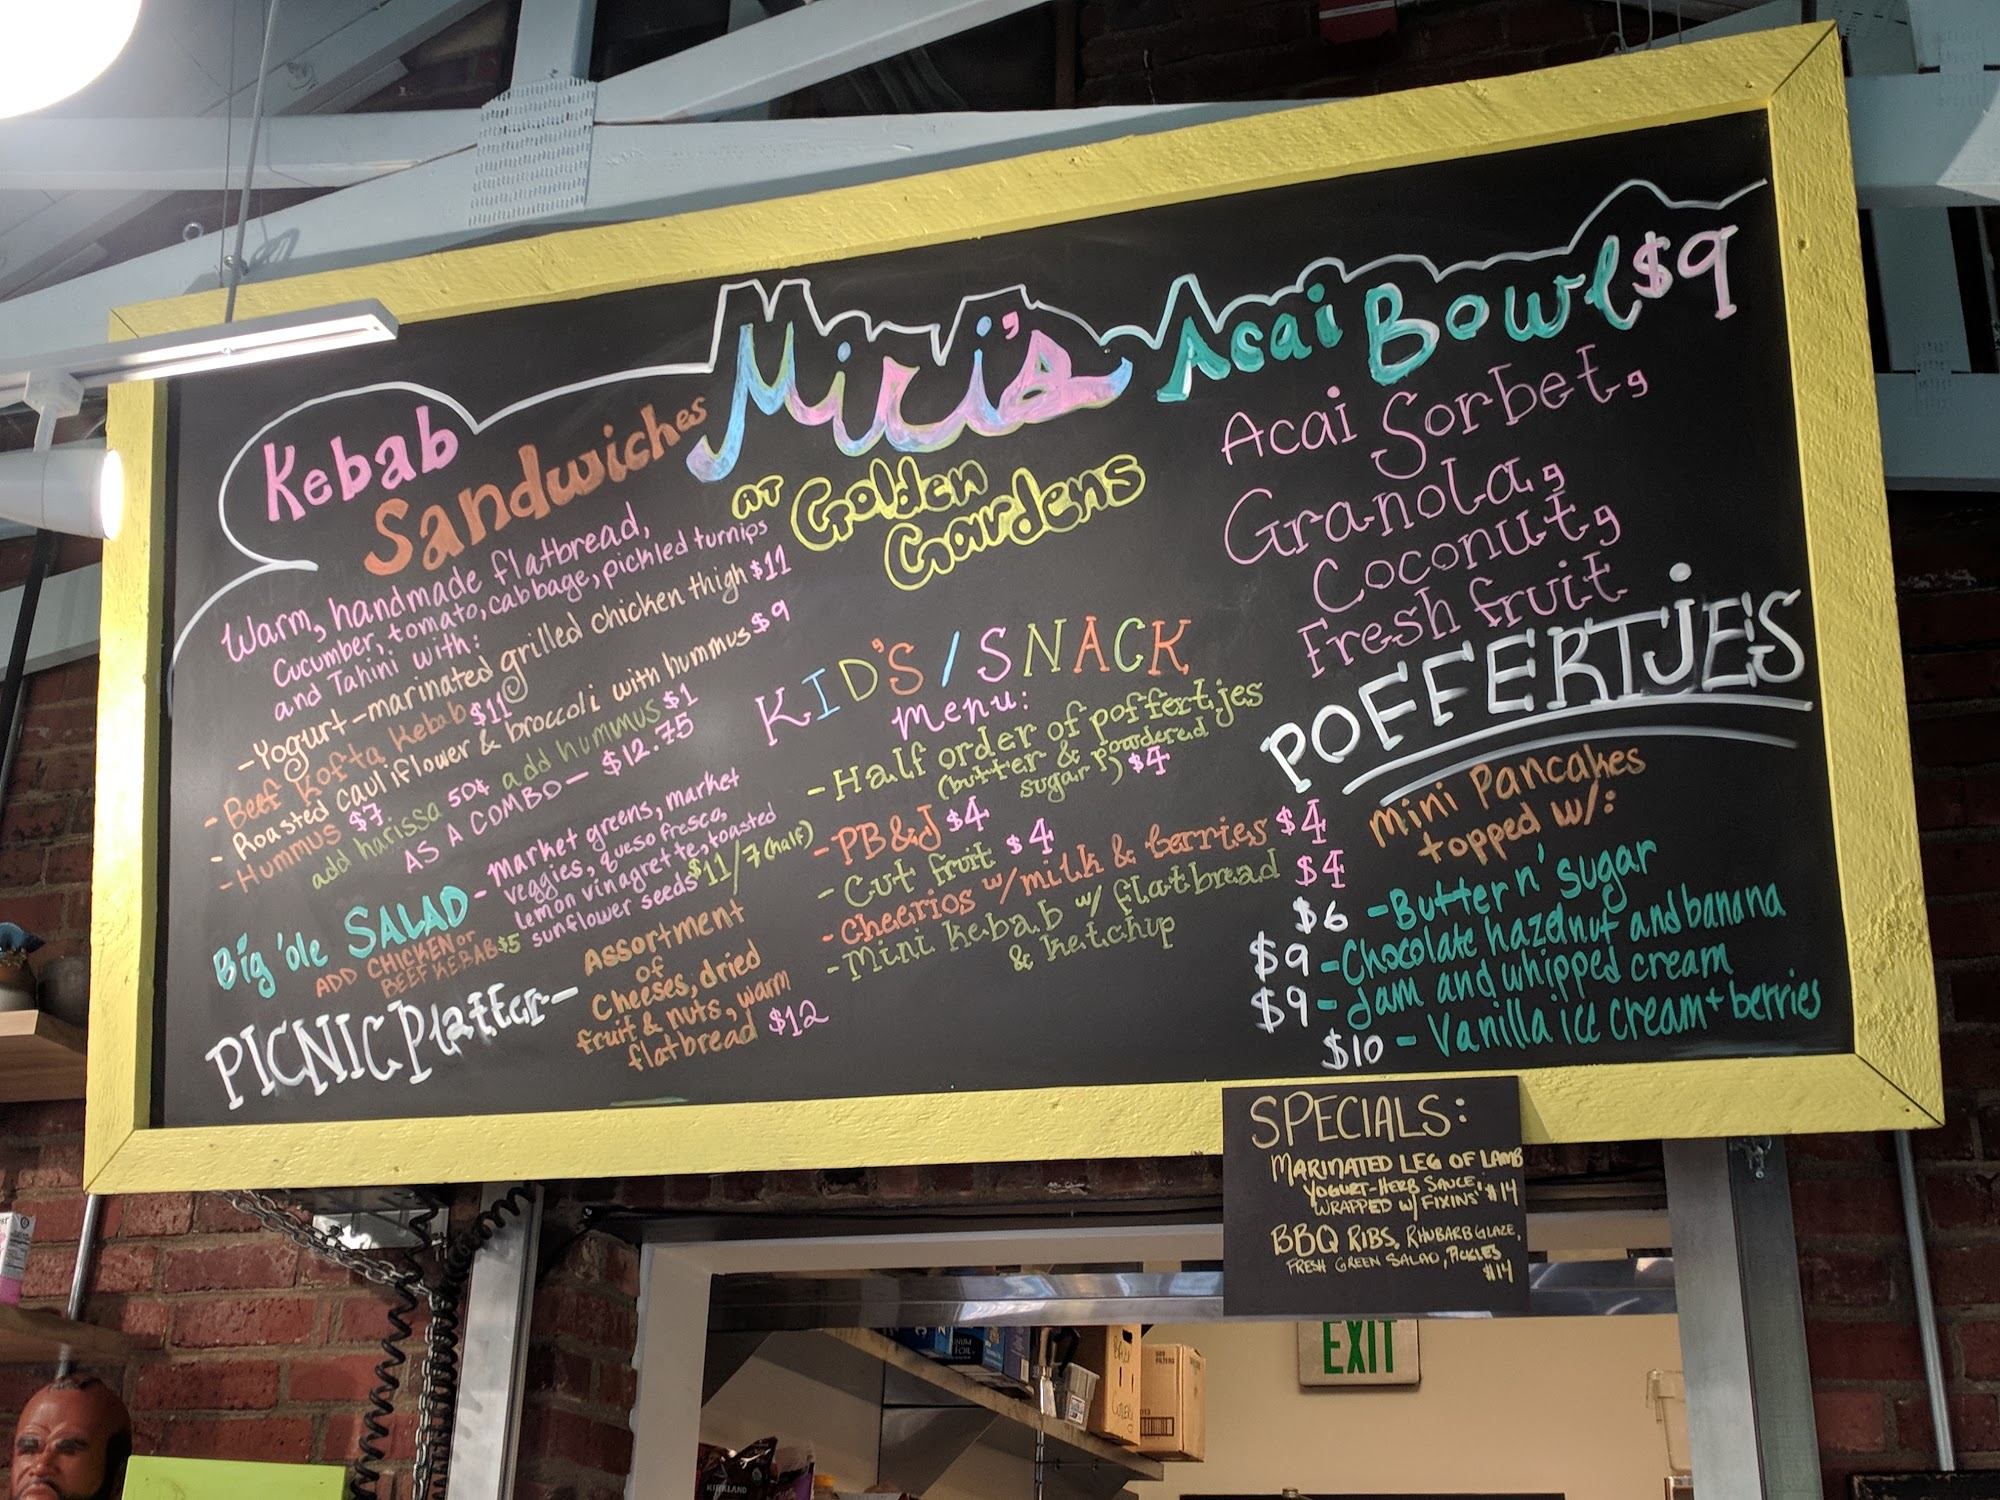 Miri's
AT Golden
Gardens
Kebab
Sandwiches
Warm, handmade flatbread,
Cucumber, tomato, cabbage, pickled turnips
and Tahini with:
-Yogurt-marinated grilled chicken thigh $11
- Beef Kofta Kebab $11
- Roasted cauliflower & broccoli with hummus $9
- Hummus $7
add harissa 50¢ add hummus $1
AS A COMBO - $12.75
Big 'ole SALAD - market greens, market
veggies, queso fresco,
lemon vinagrette, toasted
sunflower seeds $11/7 (half)
ADD CHICKEN or
BEEF KEBAB $5
PICNIC Platter - Assortment
of
Cheeses, dried
fruit & nuts, warm
flatbread $12
KID'S / SNACK
Menu:
- Half order of poffertjes
(butter & powdered
sugar) $4
- PB&J $4
- Cut fruit $4
- Cheerios w/ milk & berries $4
- Mini kebab w/ flatbread $4
& ketchup
Acai Bowl $9
Acai Sorbet,
Granola,
Coconut,
Fresh fruit
POFFERTJE'S
Mini Pancakes
topped w/:
$6 - Butter n' sugar
$9 - Chocolate hazelnut and banana
$9 - Jam and whipped cream
$10 - Vanilla ice cream + berries
SPECIALS:
MARINATED LEG OF LAMB
YOGURT-HERB SAUCE,
WRAPPED W/ FIXINS' $14
BBQ RIBS, RHUBARB GLAZE,
FRESH GREEN SALAD, PICKLES
$14
EXIT
FOIL
KIRKLAND